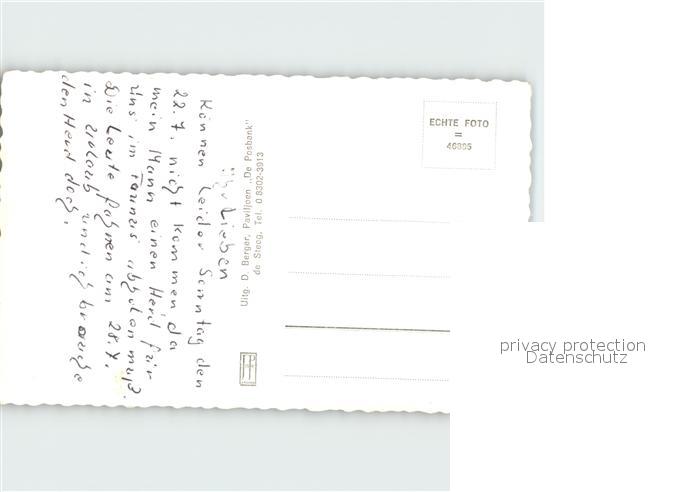 Ihr Lieben
Können leider Sonntag den
22.7. nicht kommen da
mein Mann einen Herd für
uns im Taunus abholen muß.
Die Leute fahren am 28.7.
in Urlaub und ich brauche
den Herd doch.
Uitg. D. Berger, Paviljoen „De Posbank"
de Steeg, Tel. 0 8302-3913
ECHTE FOTO
=
46895
privacy protection
Datenschutz